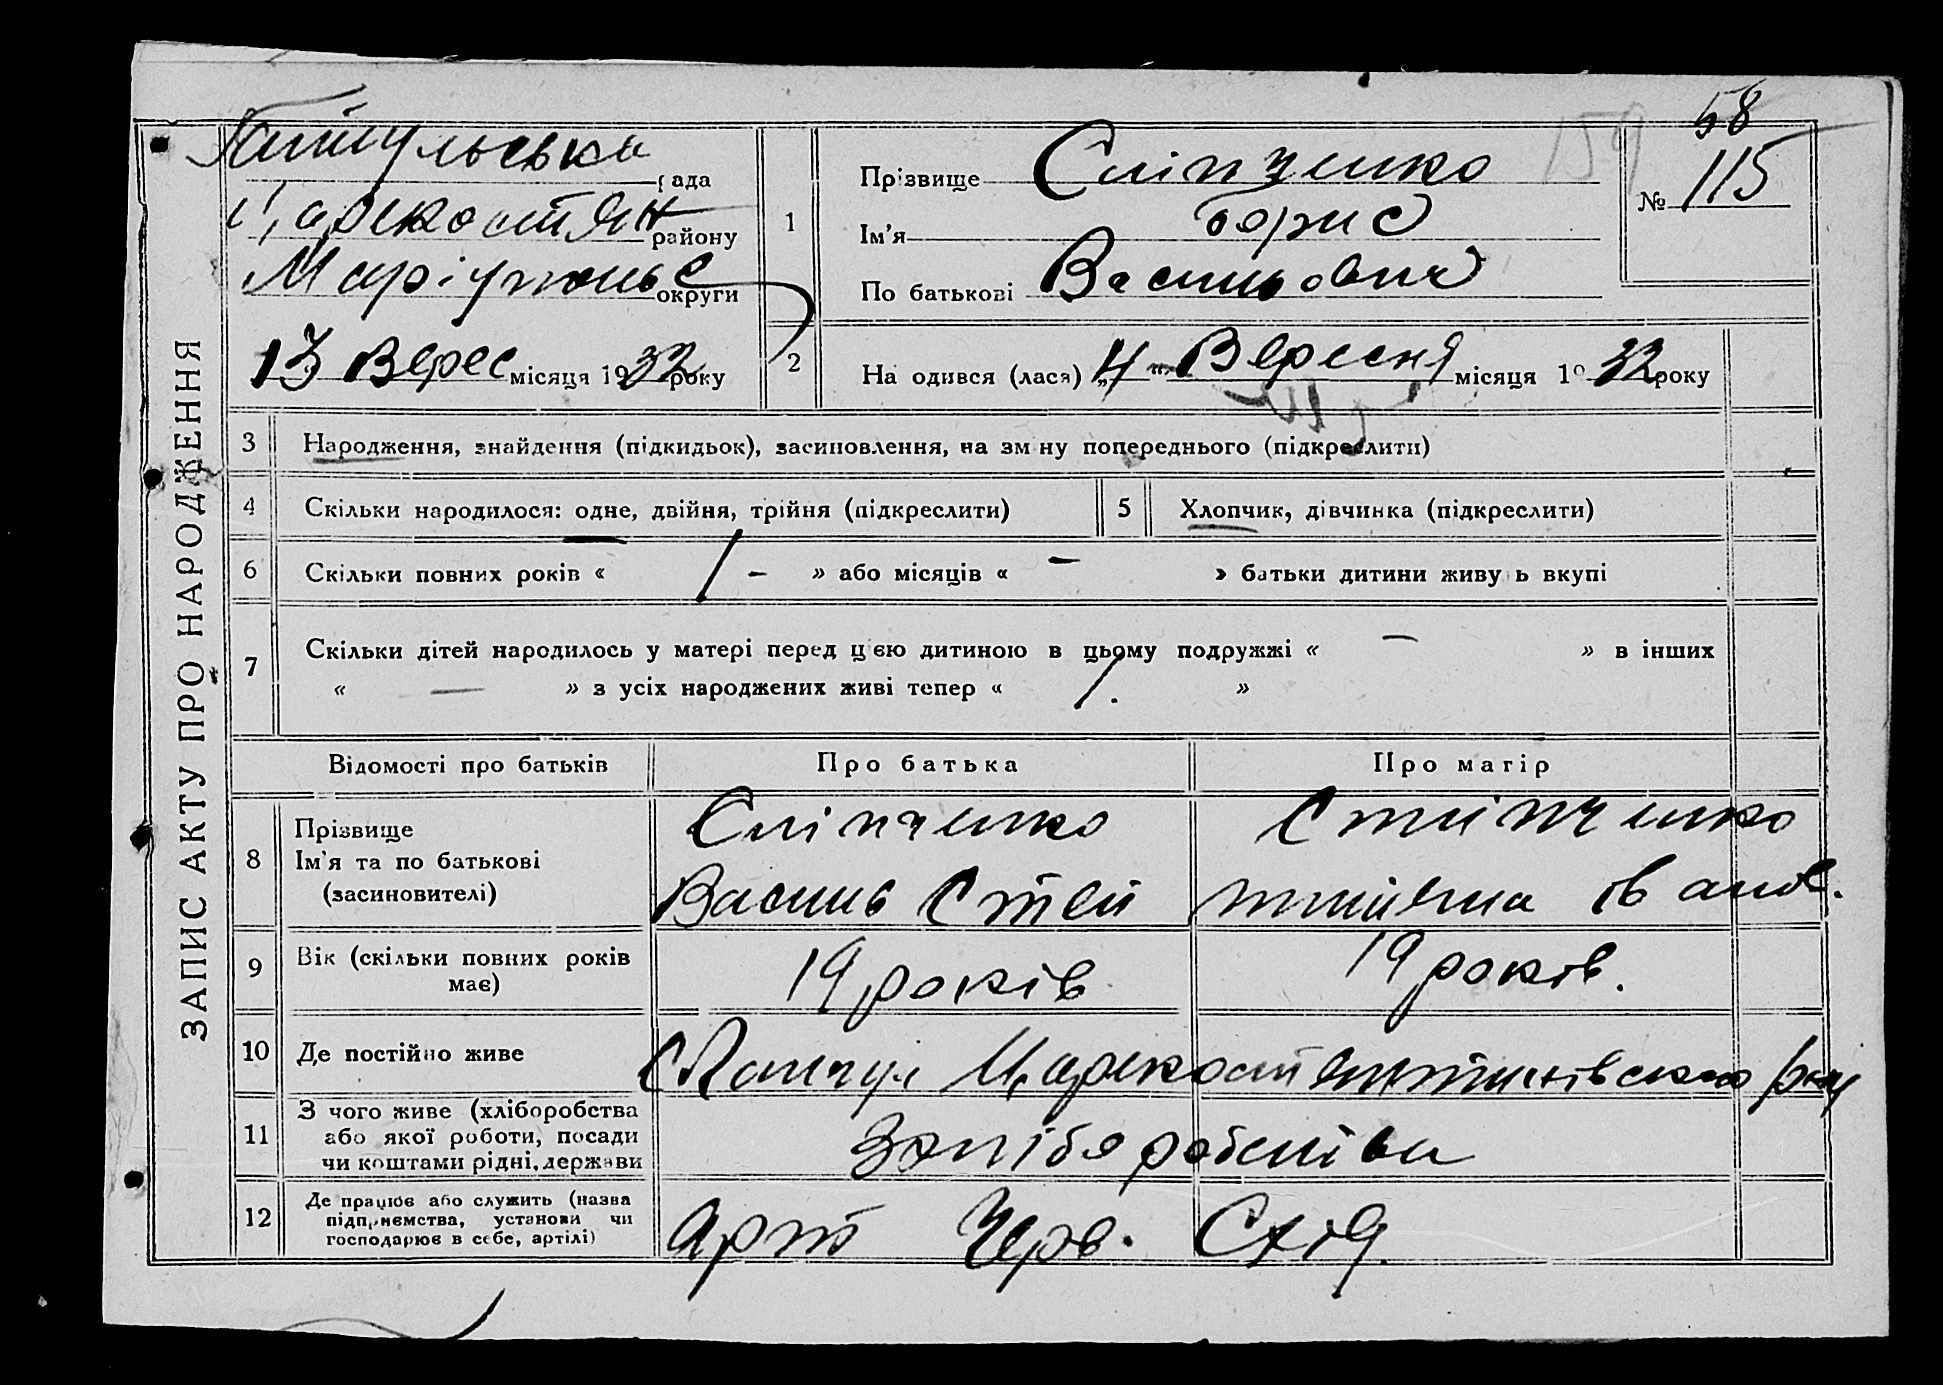 58
159
№ 115
рада
району
Маріупольс округи
13 Верес місяця 1932 року
ЗАПИС АКТУ ПРО НАРОДЖЕННЯ
1
Прізвище Сліпченко
Ім'я Борис
По батькові Васильович
2
На одився (лася) „4" Вересня місяця 19 32 року
3 Народження, знайдення (підкидьок), засиновлення, на зм ну попереднього (підкреслити)
4 Скільки народилося: одне, двійня, трійня (підкреслити)
5 Хлопчик, дівчинка (підкреслити)
6 Скільки повних років « 1 - » або місяців « — » батьки дитини живу ь вкупі
7 Скільки дітей народилось у матері перед цєю дитиною в цьому подружжі « — » в інших
« — » з усіх народжених живі тепер « 1. »
Відомості про батьків
Про батька
Про матір
8
Прізвище
Ім'я та по батькові
(засиновителі)
Сліпченко
Василь Степ
Сліпченко
9
Вік (скільки повних років
має)
19 років
19 років.
10 Де постійно живе
11
З чого живе (хліборобства
або якої роботи, посади
чи коштами рідні, держави
12
Де працює або служить (назва
підприємства, установи чи
господарює в себе, артілі)
Арт Черв. Схід